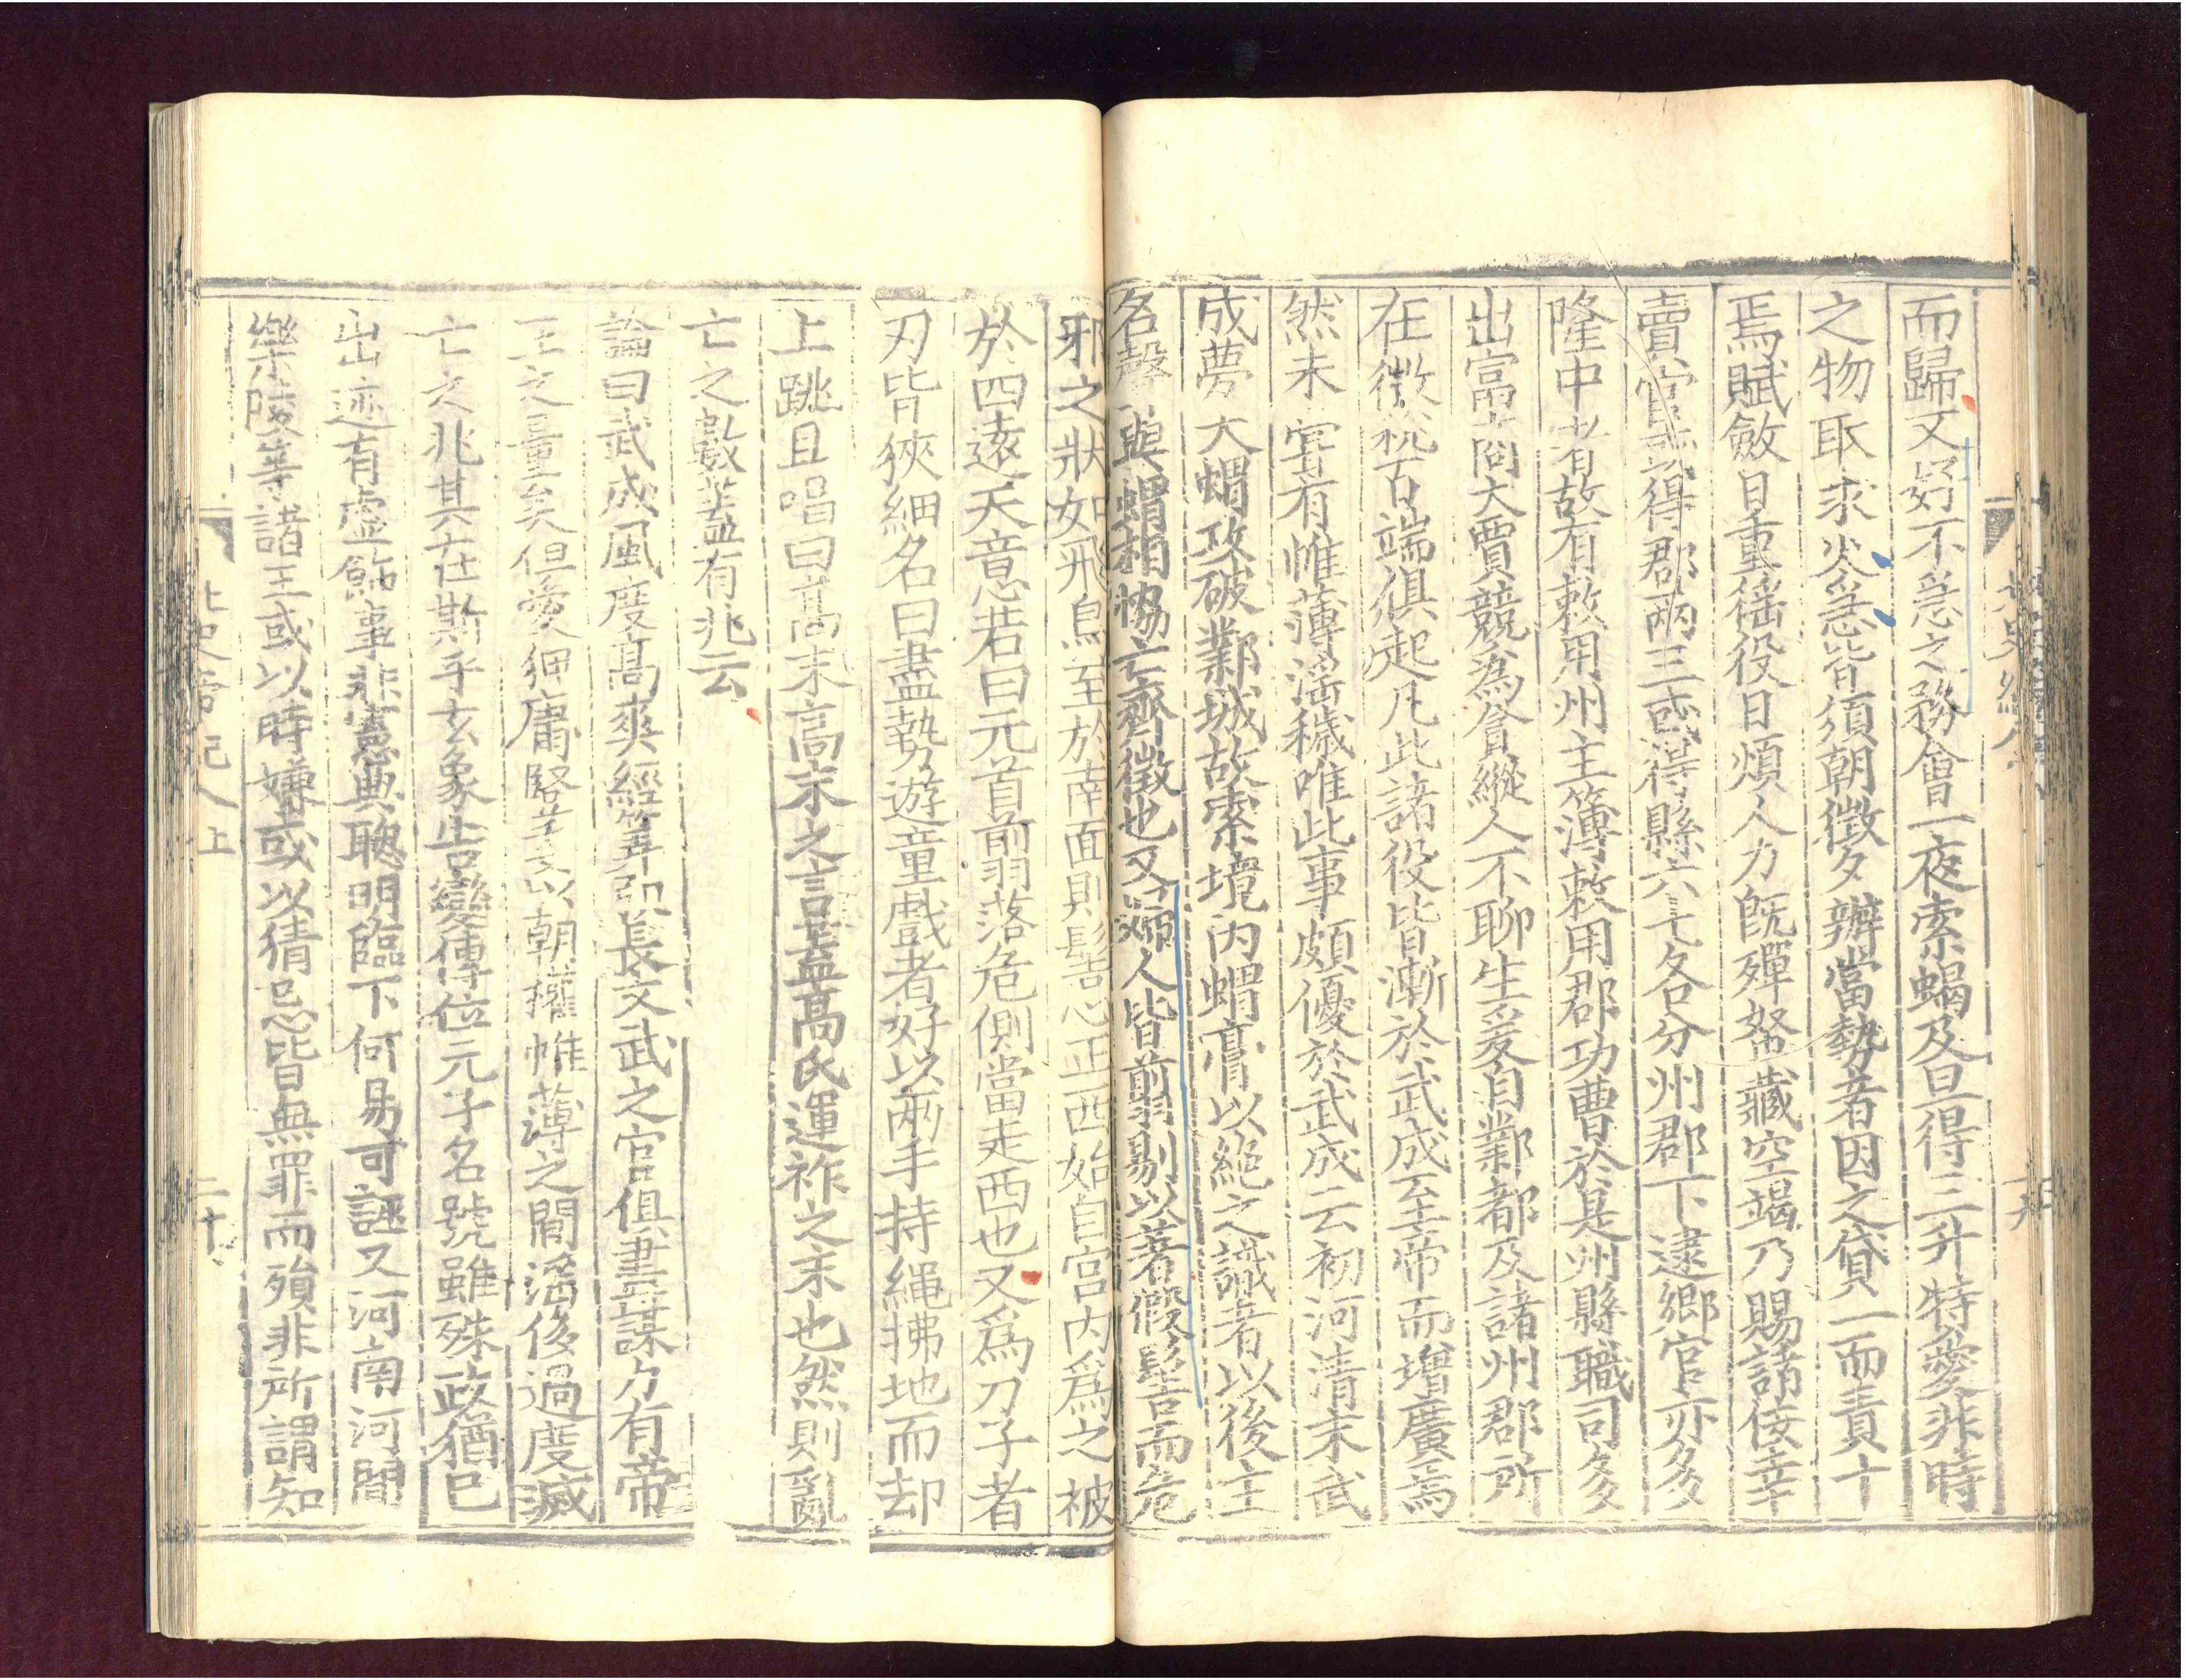 而歸又好不急之務曾一夜索蝎及旦得三升特愛非時
之物取求火急皆須朝徵夕辦當勢者因之貸一而責十
焉賦斂日重徭役日煩人力旣殫帑藏空竭乃賜諸佞幸
賣官或得郡兩三或得縣六七各分州郡下逮鄉官亦多
降中者故有敕用州主簿敕用郡功曹於是州縣職司多
出富商大賈競爲貪縱人不聊生爰自鄴都及諸州郡所
在徵稅百端俱起凡此諸役皆漸於武成至帝而增廣焉
然未嘗有帷薄淫穢唯此事頗優於武成云初河清末武
成夢大蝟攻破鄴城故索境内蝟膏以絶之識者以後主
名聲與蝟相協亡齊徵也又婦人皆剪剔以著假髻而危
邪之狀如飛鳥至於南面則髻心正西始自宫内爲之被
於四遠天意若曰元首剪落危側當走西也又爲刀子者
刃皆狹細名曰盡勢遊童戲者好以兩手持繩拂地而却
上跳且唱曰高末高末之言蓋高氏運祚之末也然則亂
亡之數蓋有兆云
論曰武成風度高爽經筭弘長文武之官俱盡謀力有帝
王之量矣但愛狎庸豎委以朝權帷薄之間淫侈過度滅
亡之兆其在斯乎玄象告變傳位元子名號雖殊政猶已
出迹有虛飾事非憲典聰明臨下何易可誣又河南河間
樂陵等諸王或以時嫌或以猜忌皆無罪而殞非所謂知
北史帝紀八上
二十